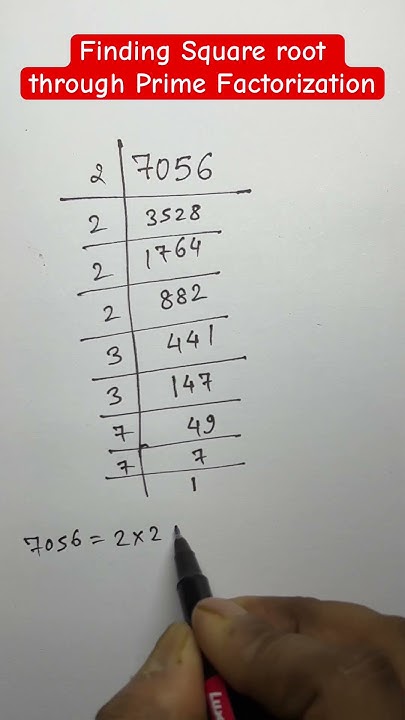 Finding Square root
through Prime Factorization
2 7056
2 3528
2 1764
2 882
3 441
3 147
7 49
7 7
1
7056 = 2 × 2
Lux